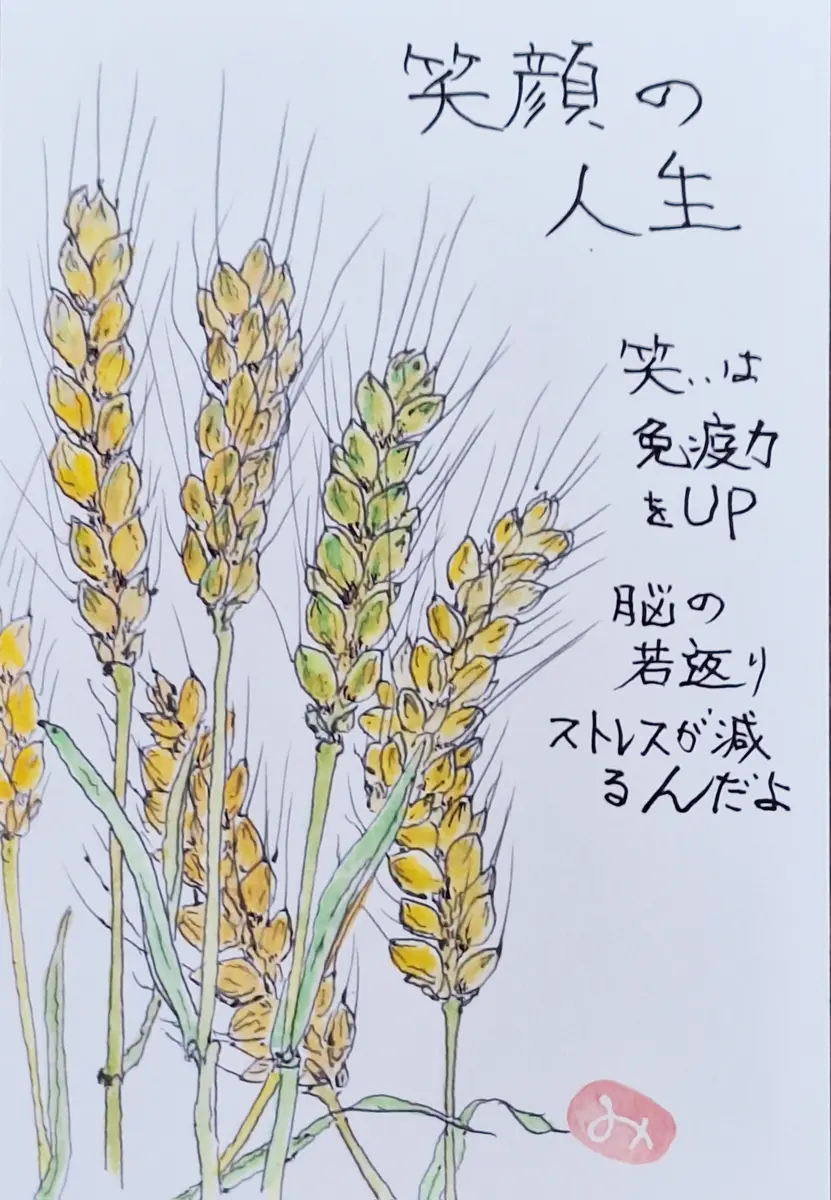 笑顔の
人生
笑いは
免疫力
をUP
脳の
若返り
ストレスが減
るんだよ
み